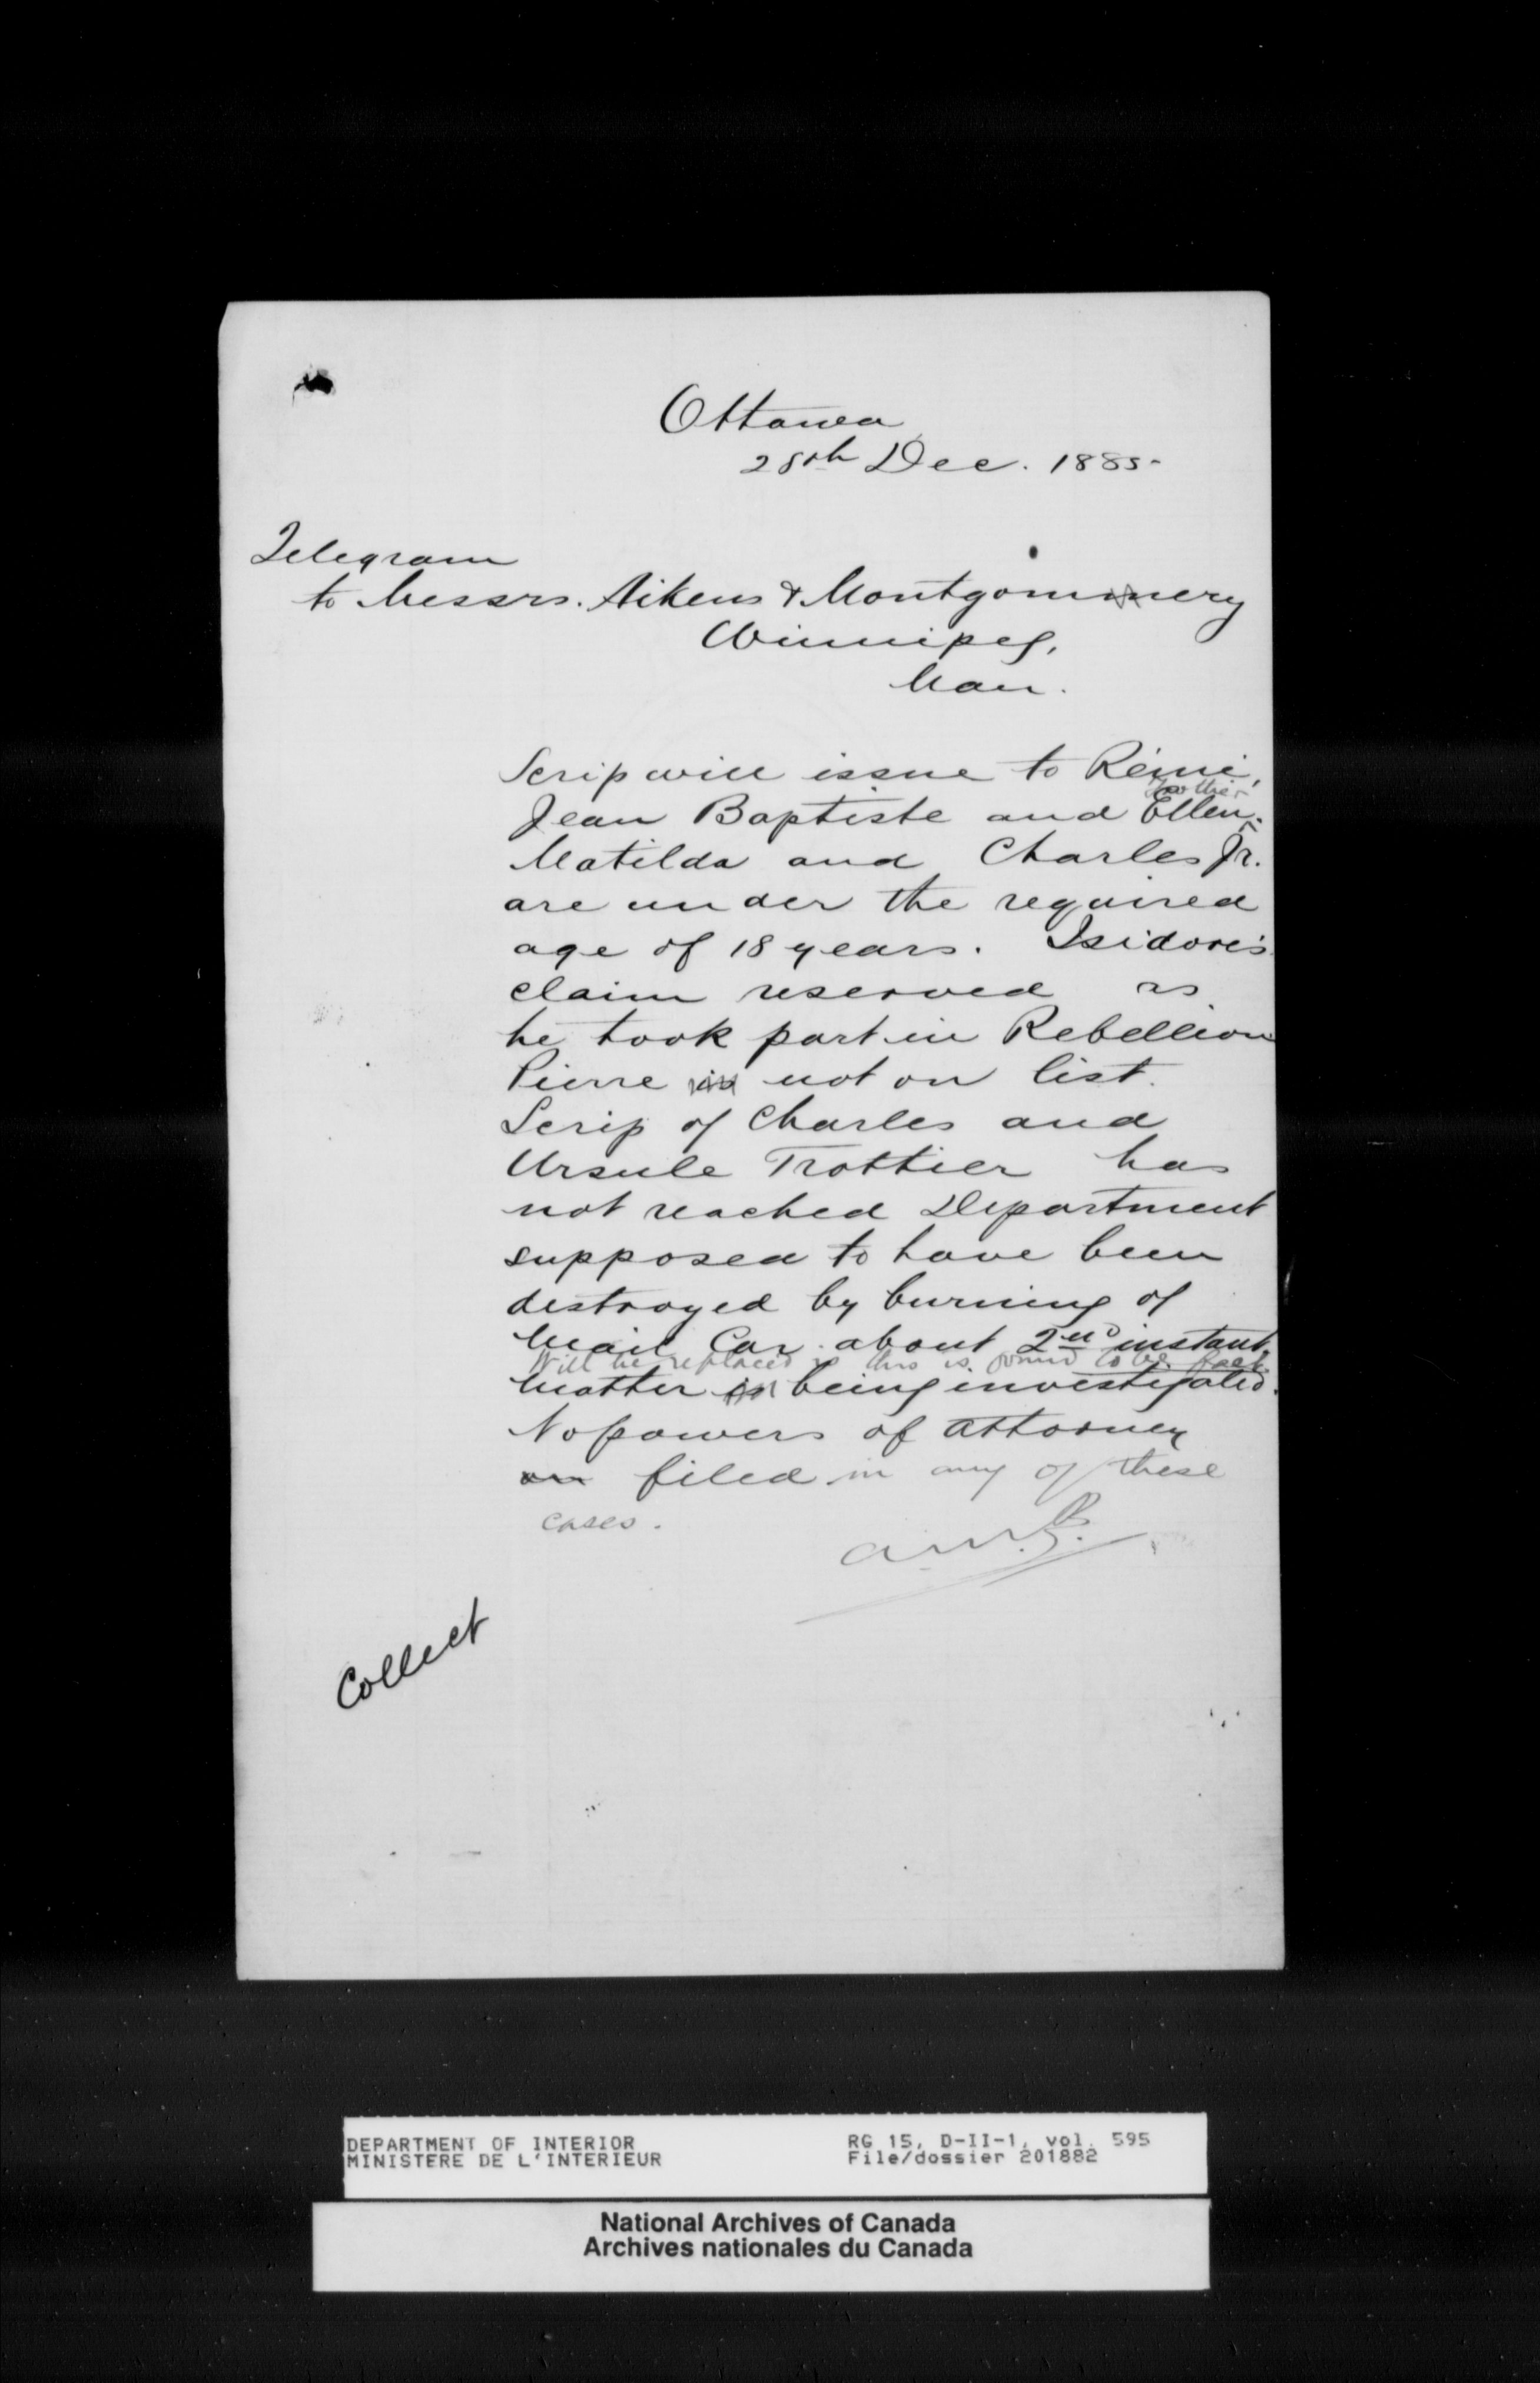 Ottawa
28th Dec. 1885-
Telegram
to Messrs. Aikens & Montgomery
Winnipeg,
Man.
Scrip will issue to Rémi,
Trottier
Jean Baptiste and Ellen.
Matilda and Charles Jr.
are under the required
age of 18 years. Isidore's
claim reserved as
he took part in Rebellion
Pierre is not on list.
Scrip of Charles and
Ursule Trottier has
not reached Department
supposed to have been
destroyed by burning of
Mail Car about 2nd instant,
Will be replaced if this is found to be fact.
Matter is being investigated.
No powers of attorney
on filed in any of these
cases.
Collect
DEPARTMENT OF INTERIOR RG 15, D-II-1, vol. 595
MINISTERE DE L'INTERIEUR File/dossier 201882
National Archives of Canada
Archives nationales du Canada